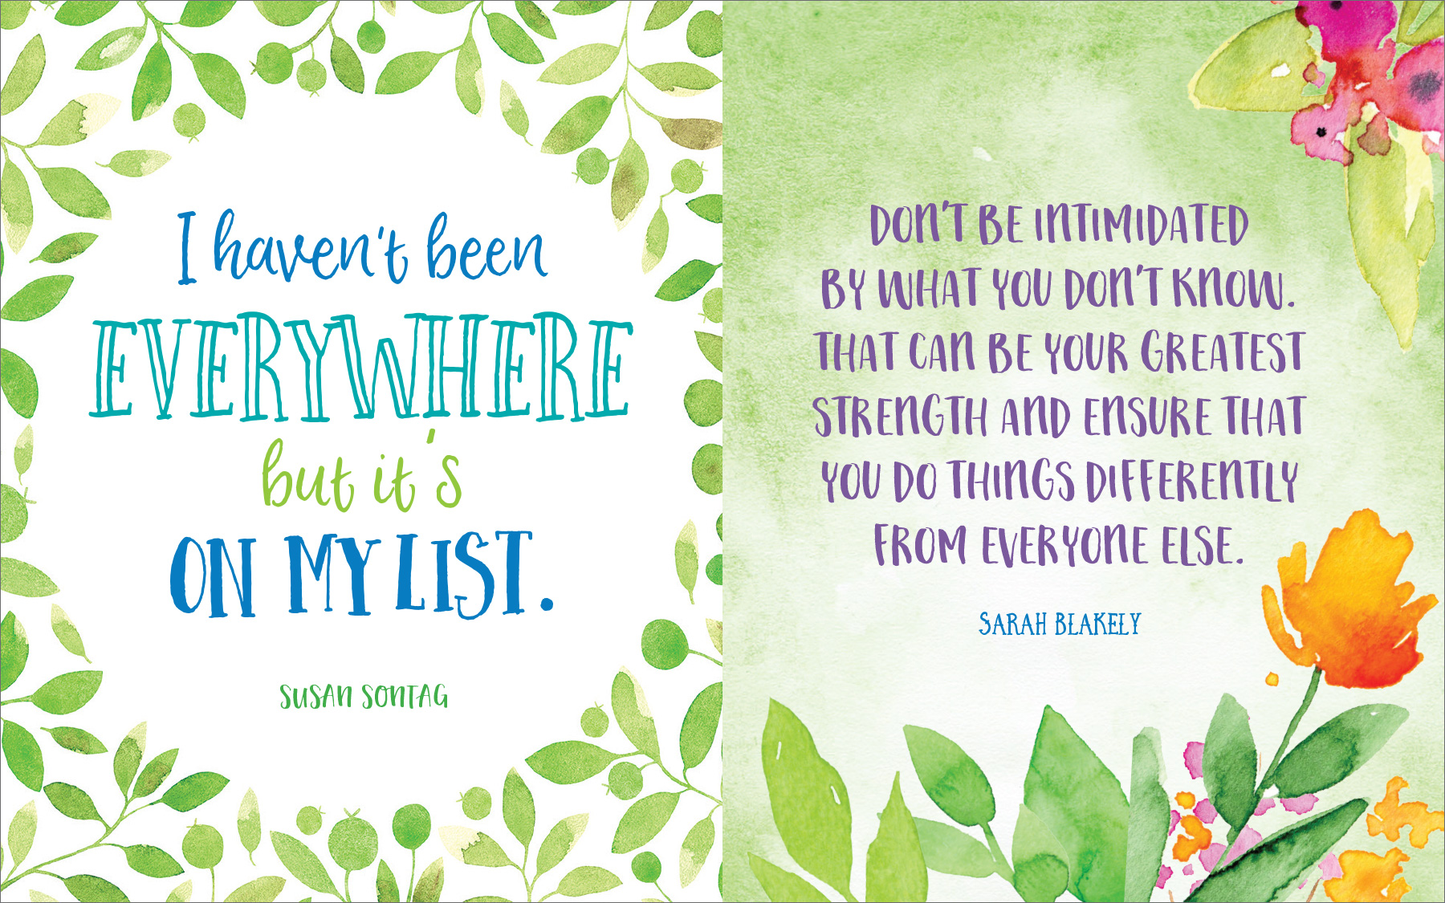 I haven't been
EVERYWHERE
but it's
ON MY LIST.
SUSAN SONTAG
DON'T BE INTIMIDATED
BY WHAT YOU DON'T KNOW.
THAT CAN BE YOUR GREATEST
STRENGTH AND ENSURE THAT
YOU DO THINGS DIFFERENTLY
FROM EVERYONE ELSE.
SARAH BLAKELY